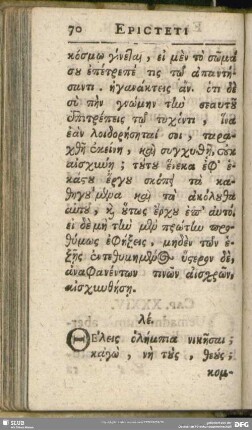 70 EPICTETI
κόσμῳ γίνεται, εἰ μὲν τὸ σῶμά
σου ἐπέτρεπέ τις τῷ ἀπαντή-
σαντι, ἠγανάκτεις ἄν. ὅτι δὲ
σὺ τὴν γνώμην τὴν σεαυτοῦ
ἐπιτρέπεις τῷ τυχόντι, ἵνα
ἐὰν λοιδορήσηταί σοι, ταρα-
χθῇ ἐκείνη, καὶ συγχυθῇ, οὐκ
αἰσχύνῃ; τούτου ἕνεκα ἐφ' ἑ-
κάστου ἔργου σκόπει τὰ κα-
θηγούμενα καὶ τὰ ἀκόλουθα
αὐτοῦ, καὶ οὕτως ἔρχου ἐπ' αὐτό.
εἰ δὲ μὴ τὴν μὲν πρώτην προ-
θύμως ἐφήξεις, μηδὲν τῶν ἑ-
ξῆς ἐντεθυμημένος ὕστερον δὲ,
ἀναφανέντων τινῶν αἰσχρῶν,
αἰσχυνθήσῃ.
λέ.
ΘΕλεις ὀλύμπια νικῆσαι;
κἀγὼ, νὴ τοὺς, θεούς;
κομ-